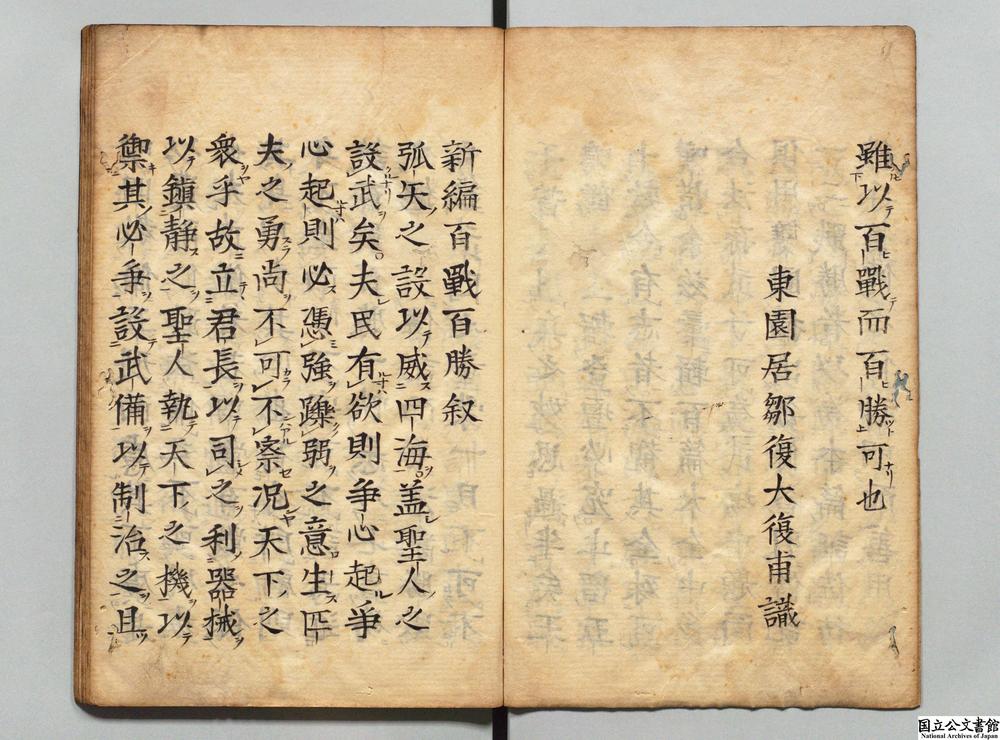 雖以百戰而百勝可也
東園居鄒復大復甫識
新編百戰百勝叙
弧矢之設以威四海盖聖人之
設武矣夫民有欲則爭心起爭
心起則必憑強躁弱之意生匹
夫之勇尚不可不察況天下之
衆乎故立君長以司之利器械
以鎮静之聖人執天下之機以
禦其必爭設武備以制治之且
国立公文書館
National Archives of Japan